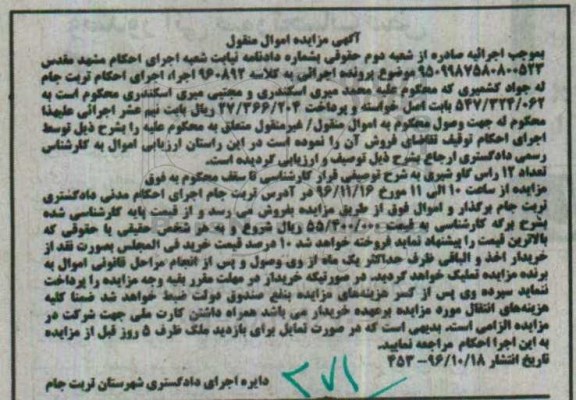 آگهی مزایده اموال منقول
بموجب اجرائیه صادره از شعبه دوم حقوقی بشماره دادنامه نیابت شعبه اجرای احکام مشهد مقدس
۹۵۰۹۹۸۷۵۸۰۸۰۰۵۲۳ موضوع پرونده اجرائی به کلاسه ۹۶۰۸۹۲ اجرا، اجرای احکام تربت جام
له جواد کشمیری که محکوم علیه محمد میری اسکندری و مجتبی میری اسکندری محکوم است به
۵۴۷/۳۲۴/۰۶۲ بابت اصل خواسته و پرداخت ۲۷/۳۶۶/۲۰۴ ریال بابت نیم عشر اجرائی علیهذا
محکوم له جهت وصول محکوم به اموال منقول/ غیرمنقول متعلق به محکوم علیه را بشرح ذیل توسط
اجرای احکام توقیف تقاضای فروش آن را نموده است در این راستان ارزیابی اموال به کارشناس
رسمی دادگستری ارجاع بشرح ذیل توصیف و ارزیابی گردیده است.
تعداد ۱۲ راس گاو شیری به شرح توصیفی قرار کارشناسی تا سقف محکوم به فوق
مزایده از ساعت ۱۰ الی ۱۱ مورخ ۹۶/۱۱/۱۶ در آدرس تربت جام اجرای احکام مدنی دادگستری
تربت جام برگذار و اموال فوق از طریق مزایده بفروش می رسد و از قیمت پایه کارشناسی شده
بشرح برگه کارشناسی به قیمت ۵۵/۳۰۰/۰۰۰ ریال شروع و به هر شخص حقیقی یا حقوقی که
بالاترین قیمت را پیشنهاد نماید فروخته خواهد شد ۱۰ درصد قیمت خرید فی المجلس بصورت نقد از
خریدار اخذ و الباقی ظرف حداکثر یک ماه از وی وصول و پس از انجام مراحل قانونی اموال به
برنده مزایده تملیک خواهد گردید. در صورتیکه خریدار در مهلت مقرر بقیه وجه مزایده را پرداخت
ننماید سپرده وی پس از کسر هزینه‌های مزایده بنفع صندوق دولت ضبط خواهد شد ضمنا کلیه
هزینه‌های انتقال مورد مزایده برعهده خریدار می باشد همراه داشتن کارت ملی جهت شرکت در
مزایده الزامی است. بدیهی است که در صورت تمایل برای بازدید ملک ظرف ۵ روز قبل از مزایده
به این اجرا احکام مراجعه نمایید.
تاریخ انتشار ۹۶/۱۰/۱۸- ۴۵۳
دایره اجرای دادگستری شهرستان تربت جام
۲۷۱